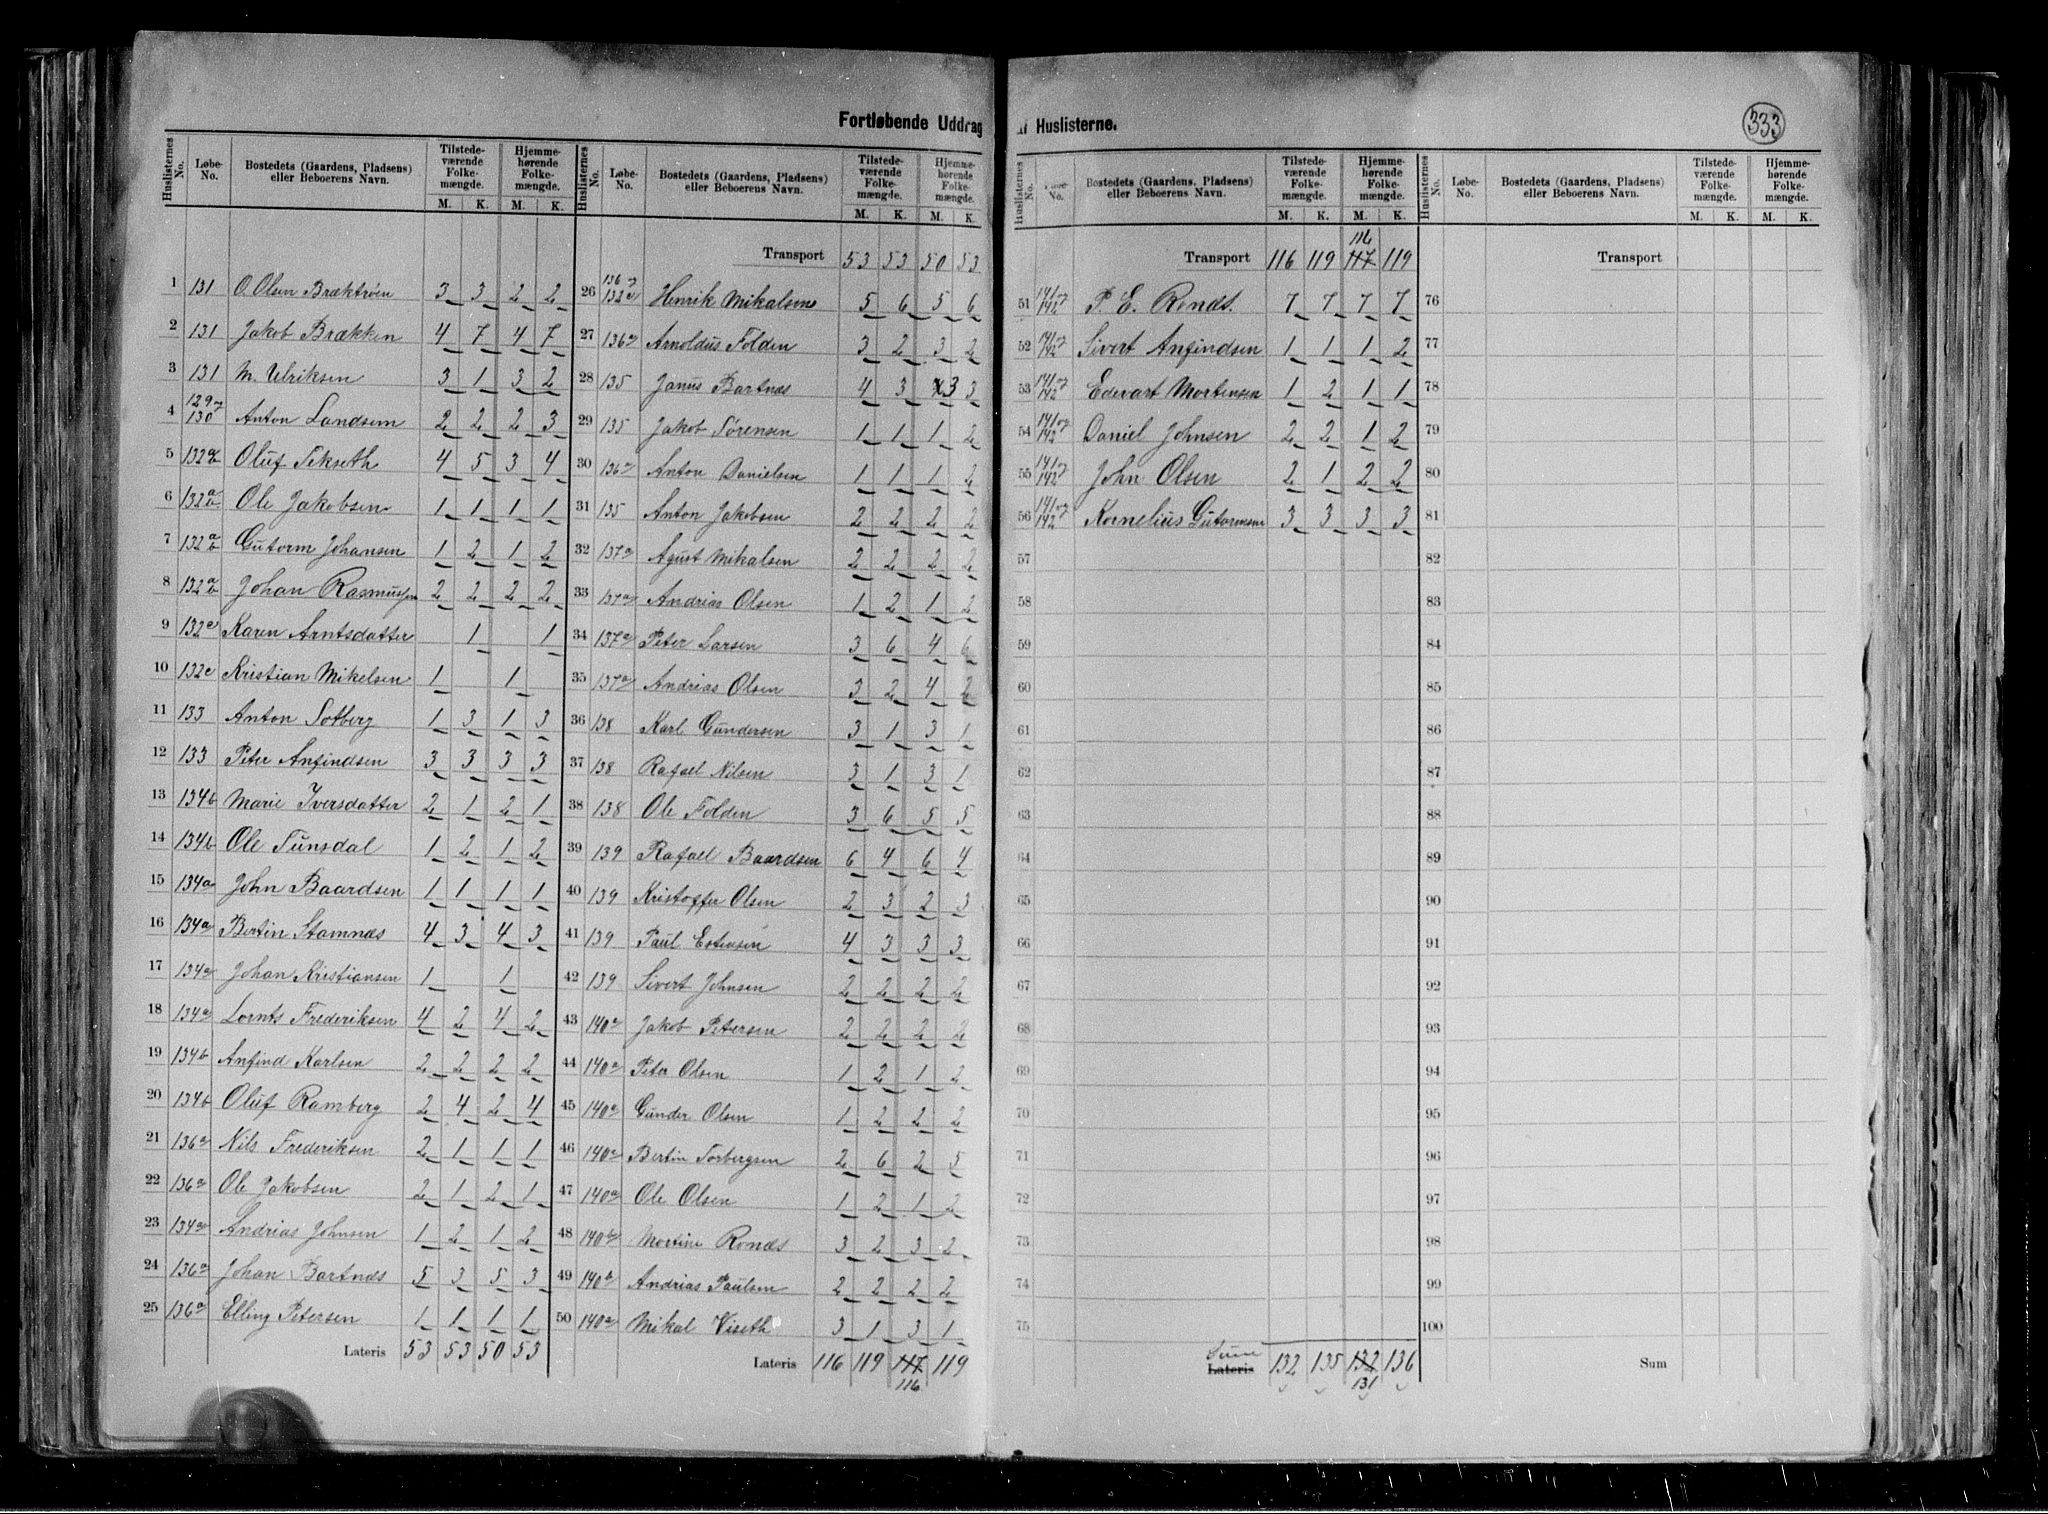 Fortløbende Uddrag af Huslisterne.
333
Huslisternes No. Løbe-No. Bostedets (Gaardens, Pladsens) eller Beboerens Navn. Tilstedeværende Folkemængde. M. K. Hjemmehørende Folkemængde. M. K.
1 131 O. Olsen Bræktrøen 3 3 2 2
2 131 Jakob Brækken 4 7 4 7
3 131 M. Ulriksen 3 1 3 2
4 129 130 Anton Landsem 2 2 2 3
5 132 Oluf Tekseth 4 5 3 4
6 132 a b Ole Jakobsen 1 1 1 1
7 132 a b Gutorm Johansen 1 2 1 2
8 132 a b Johan Rasmussen 2 2 2 2
9 132c Karen Arntsdatter 1 1
10 132c Kristian Mikelsen 1 1
11 133 Anton Solberg 1 3 1 3
12 133 Peter Anfindsen 3 3 3 3
13 134b Marie Iversdatter 2 1 2 1
14 134b Ole Tunsdal 1 2 1 2
15 134a John Baardsen 1 1 1 1
16 134a Bertin Stamnæs 4 3 4 3
17 134a Johan Kristiansen 1 1
18 134a Lornts Frederiksen 4 2 4 2
19 134b Anfind Karlsen 2 2 2 2
20 134b Oluf Ramberg 2 4 2 4
21 136a Nils Frederiksen 2 1 1 1
22 136a Ole Jakobsen 2 1 2 1
23 134a Andrias Johnsen 1 2 1 2
24 136a Johan Bartnæs 5 3 5 3
25 136a Elling Petersen 1 1 1 1
Lateris 53 53 50 53
Huslisternes No. Løbe-No. Bostedets (Gaardens, Pladsens) eller Beboerens Navn. Tilstedeværende Folkemængde. M. K. Hjemmehørende Folkemængde. M. K.
Transport 53 53 50 53
26 136 132c Henrik Mikalsen 5 6 5 6
27 136a Arnoldus Folden 3 2 3 2
28 135 Janus Bartnæs 4 3 3 3
29 135 Jakob Sørensen 1 1 1 2
30 136a Anton Danielsen 1 1 1 2
31 135 Anton Jakobsen 2 2 2 2
32 137a Agust Mikalsen 2 2 2 2
33 137a Andrias Olsen 1 2 1 2
34 137a Peter Larsen 3 6 4 6
35 137a Andrias Olsen 3 2 4 2
36 138 Karl Gundersen 3 1 3 1
37 138 Rafael Nilsen 3 1 3 1
38 138 Ole Folden 3 6 5 5
39 139 Rafael Baardsen 6 4 6 4
40 139 Kristoffer Olsen 2 3 2 3
41 139 Paul Estensen 4 3 3 3
42 139 Sivert Johnsen 2 2 2 2
43 140a Jakob Petersen 2 2 2 2
44 140a Peter Olsen 1 2 1 2
45 140a Gunder Olsen 1 2 2 2
46 140a Bertin Torbergsen 2 6 2 5
47 140a Ole Olsen 1 2 1 2
48 140b Mortine Ronæs 3 2 3 2
49 140b Andrias Paulsen 2 2 2 2
50 140a Mikal Viseth 3 1 3 1
Lateris 116 119 117 119
116
Huslisternes No. Løbe-No. Bostedets (Gaardens, Pladsens) eller Beboerens Navn. Tilstedeværende Folkemængde. M. K. Hjemmehørende Folkemængde. M. K.
116
Transport 116 119 117 119
51 141 142 P. E. Ronæs. 7 7 7 7
52 141 142 Sivert Anfindsen 1 1 1 2
53 141 142 Edevart Mortensen 1 2 1 1
54 141 142 Daniel Johnsen 2 2 1 2
55 141 142 John Olsen 2 1 2 2
56 141 142 Kornelius Gutormsen 3 3 3 3
57
58
59
60
61
62
63
64
65
66
67
68
69
70
71
72
73
74
75
Sum
Lateris 132 135 132 136
131
Huslisternes No. Løbe-No. Bostedets (Gaardens, Pladsens) eller Beboerens Navn. Tilstedeværende Folkemængde. M. K. Hjemmehørende Folkemængde. M. K.
Transport
76
77
78
79
80
81
82
83
84
85
86
87
88
89
90
91
92
93
94
95
96
97
98
99
100
Sum